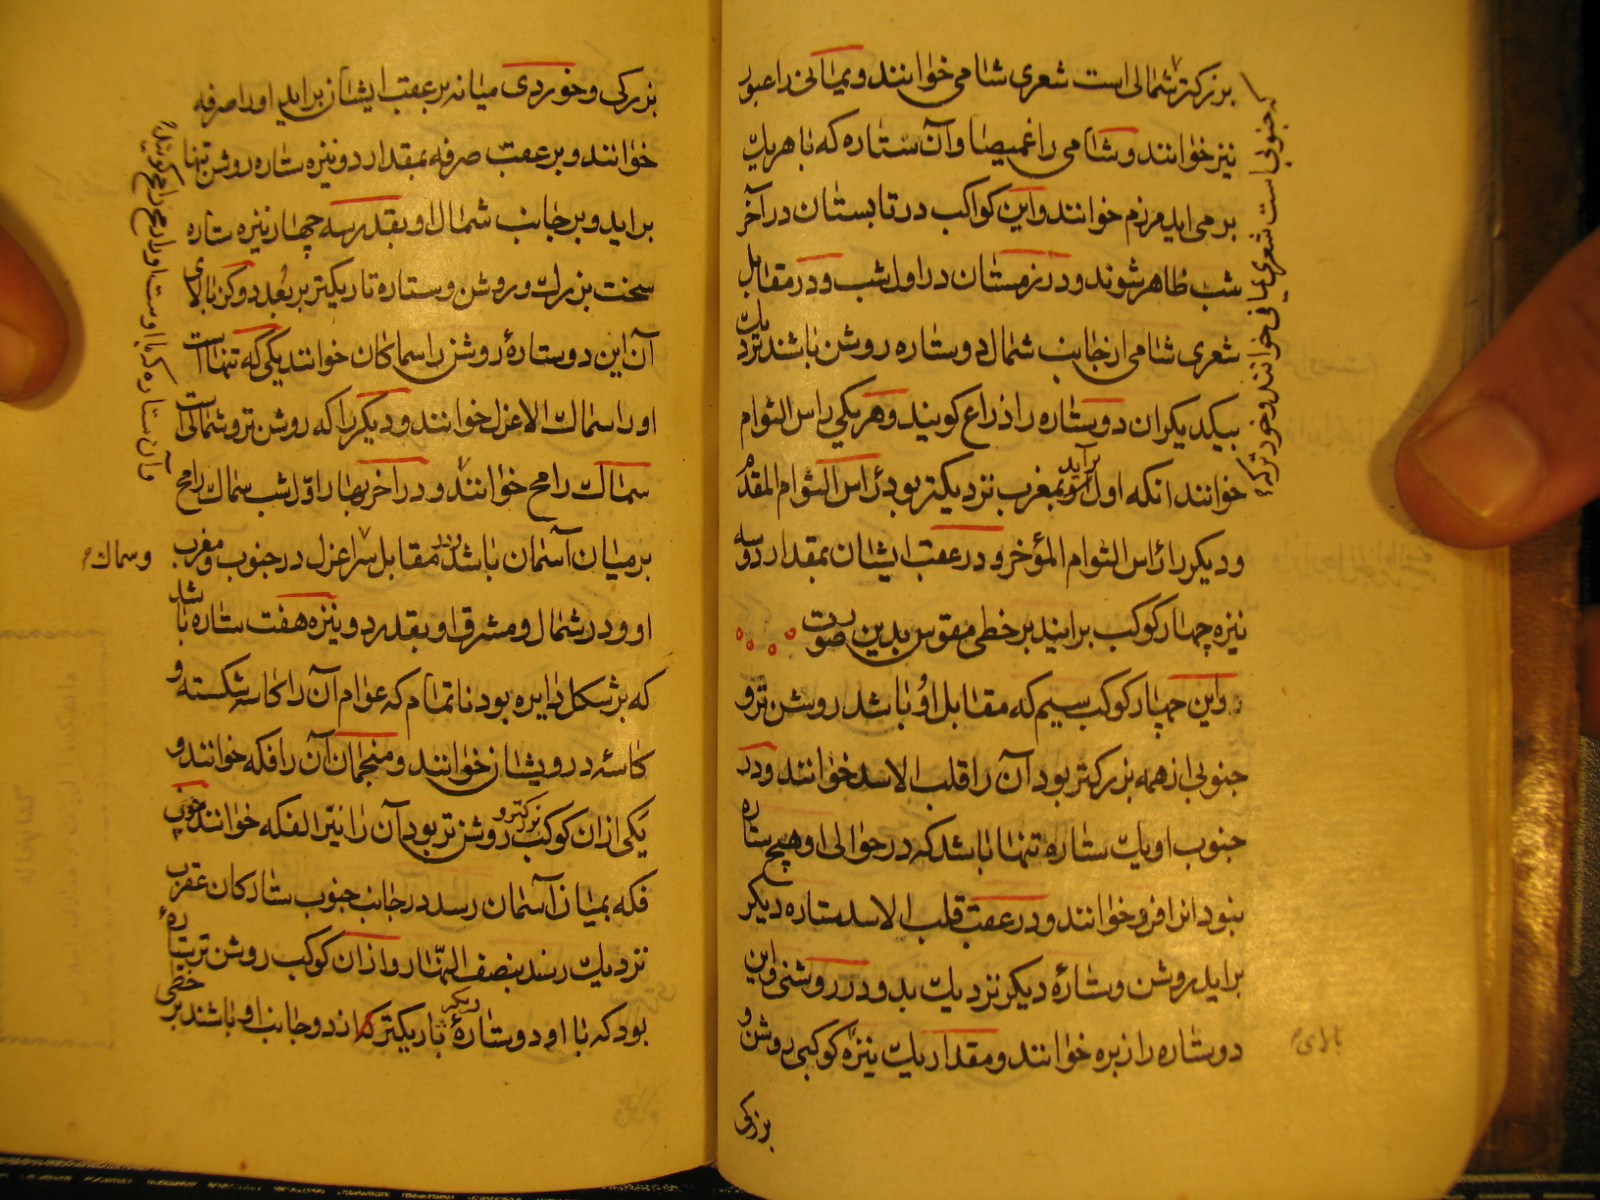 بزرکتر شمالی است شعری شامی خوانند و یمانی را عبور
نیز خوانند و شامی را غمیصا و آن ستاره که با هریک
برمی اید مرزم خوانند و این کواکب در تابستان در آخر
شب ظاهر شوند و در زمستان در اول شب و در مقابل
شعری شامی از جانب شمال دو ستاره روشن باشند نزدیک
بیکدیکر ان دو ستاره را ذراع کویند و هر یکی راس التوام
خوانند انکه اول براید و بمغرب نزدیکتر بود راس التوام المقدم
و دیکر را راس التوام المؤخر و در عقب ایشان بمقدار دو سه
نیزه چهار کوکب برایند بر خطی مقوس بدین صورت
و این چهار کوکب سیم که مقابل او باشد روشن تر و
جنوبی از همه بزرکتر بود آن را قلب الاسد خوانند و در
جنوب او یک ستاره تنها باشد که در حوالی او هیچ ستاره
نبود انرا فرد خوانند و در عقب قلب الاسد ستاره دیکر
براید روشن و ستارهٔ دیکر نزدیک بدو در روشنی و این
دو ستاره را زبره خوانند و مقدار یک نیزه کوکبی روشن و
بزرکی
که جنوبی است شعری یمانی خوانند و خردتر که
بالای
بزرکی و خوردی میانه بر عقب ایشان براید او را صرفه
خوانند و بر عقب صرفه بمقدار دو نیزه ستاره روشن تنها
براید و بر جانب شمال او بقدر سه چهار نیزه ستاره
سخت بزرک و روشن و ستاره تاریکتر بر بعد دو کز بالای
آن این دو ستارهٔ روشن را سماکان خوانند یکی که تنها است
او را سماک الاعزل خوانند و دیکر را که روشن تر و شمالی است
سماک رامح خوانند و در آخر بهار اول شب سماک رامح
بر میان آسمان باشد مقابل سر اعزل در جنوب و مغرب
او و در شمال و مشرق او بقدر دو نیزه هفت ستاره باشد
که بر شکل دایره بود ناتمام که عوام آن را کاسه شکسته و
کاسهٔ درویشان خوانند و منجمان آن را فکه خوانند و
یکی ازان کوکب بزرکتر و روشن تر بود آن را نیر الفکه خوانند چون
فکه بمیان آسمان رسد در جانب جنوب ستارکان عقرب
نزدیک رسند بنصف النهار و ازان کوکب روشن تر ستارهٔ
بود که با او دو ستارهٔ دیکر تاریکتر که از دو جانب او باشند بر خطی
و آن ستاره که با اوست او را رمح رامح کویند
و سماک